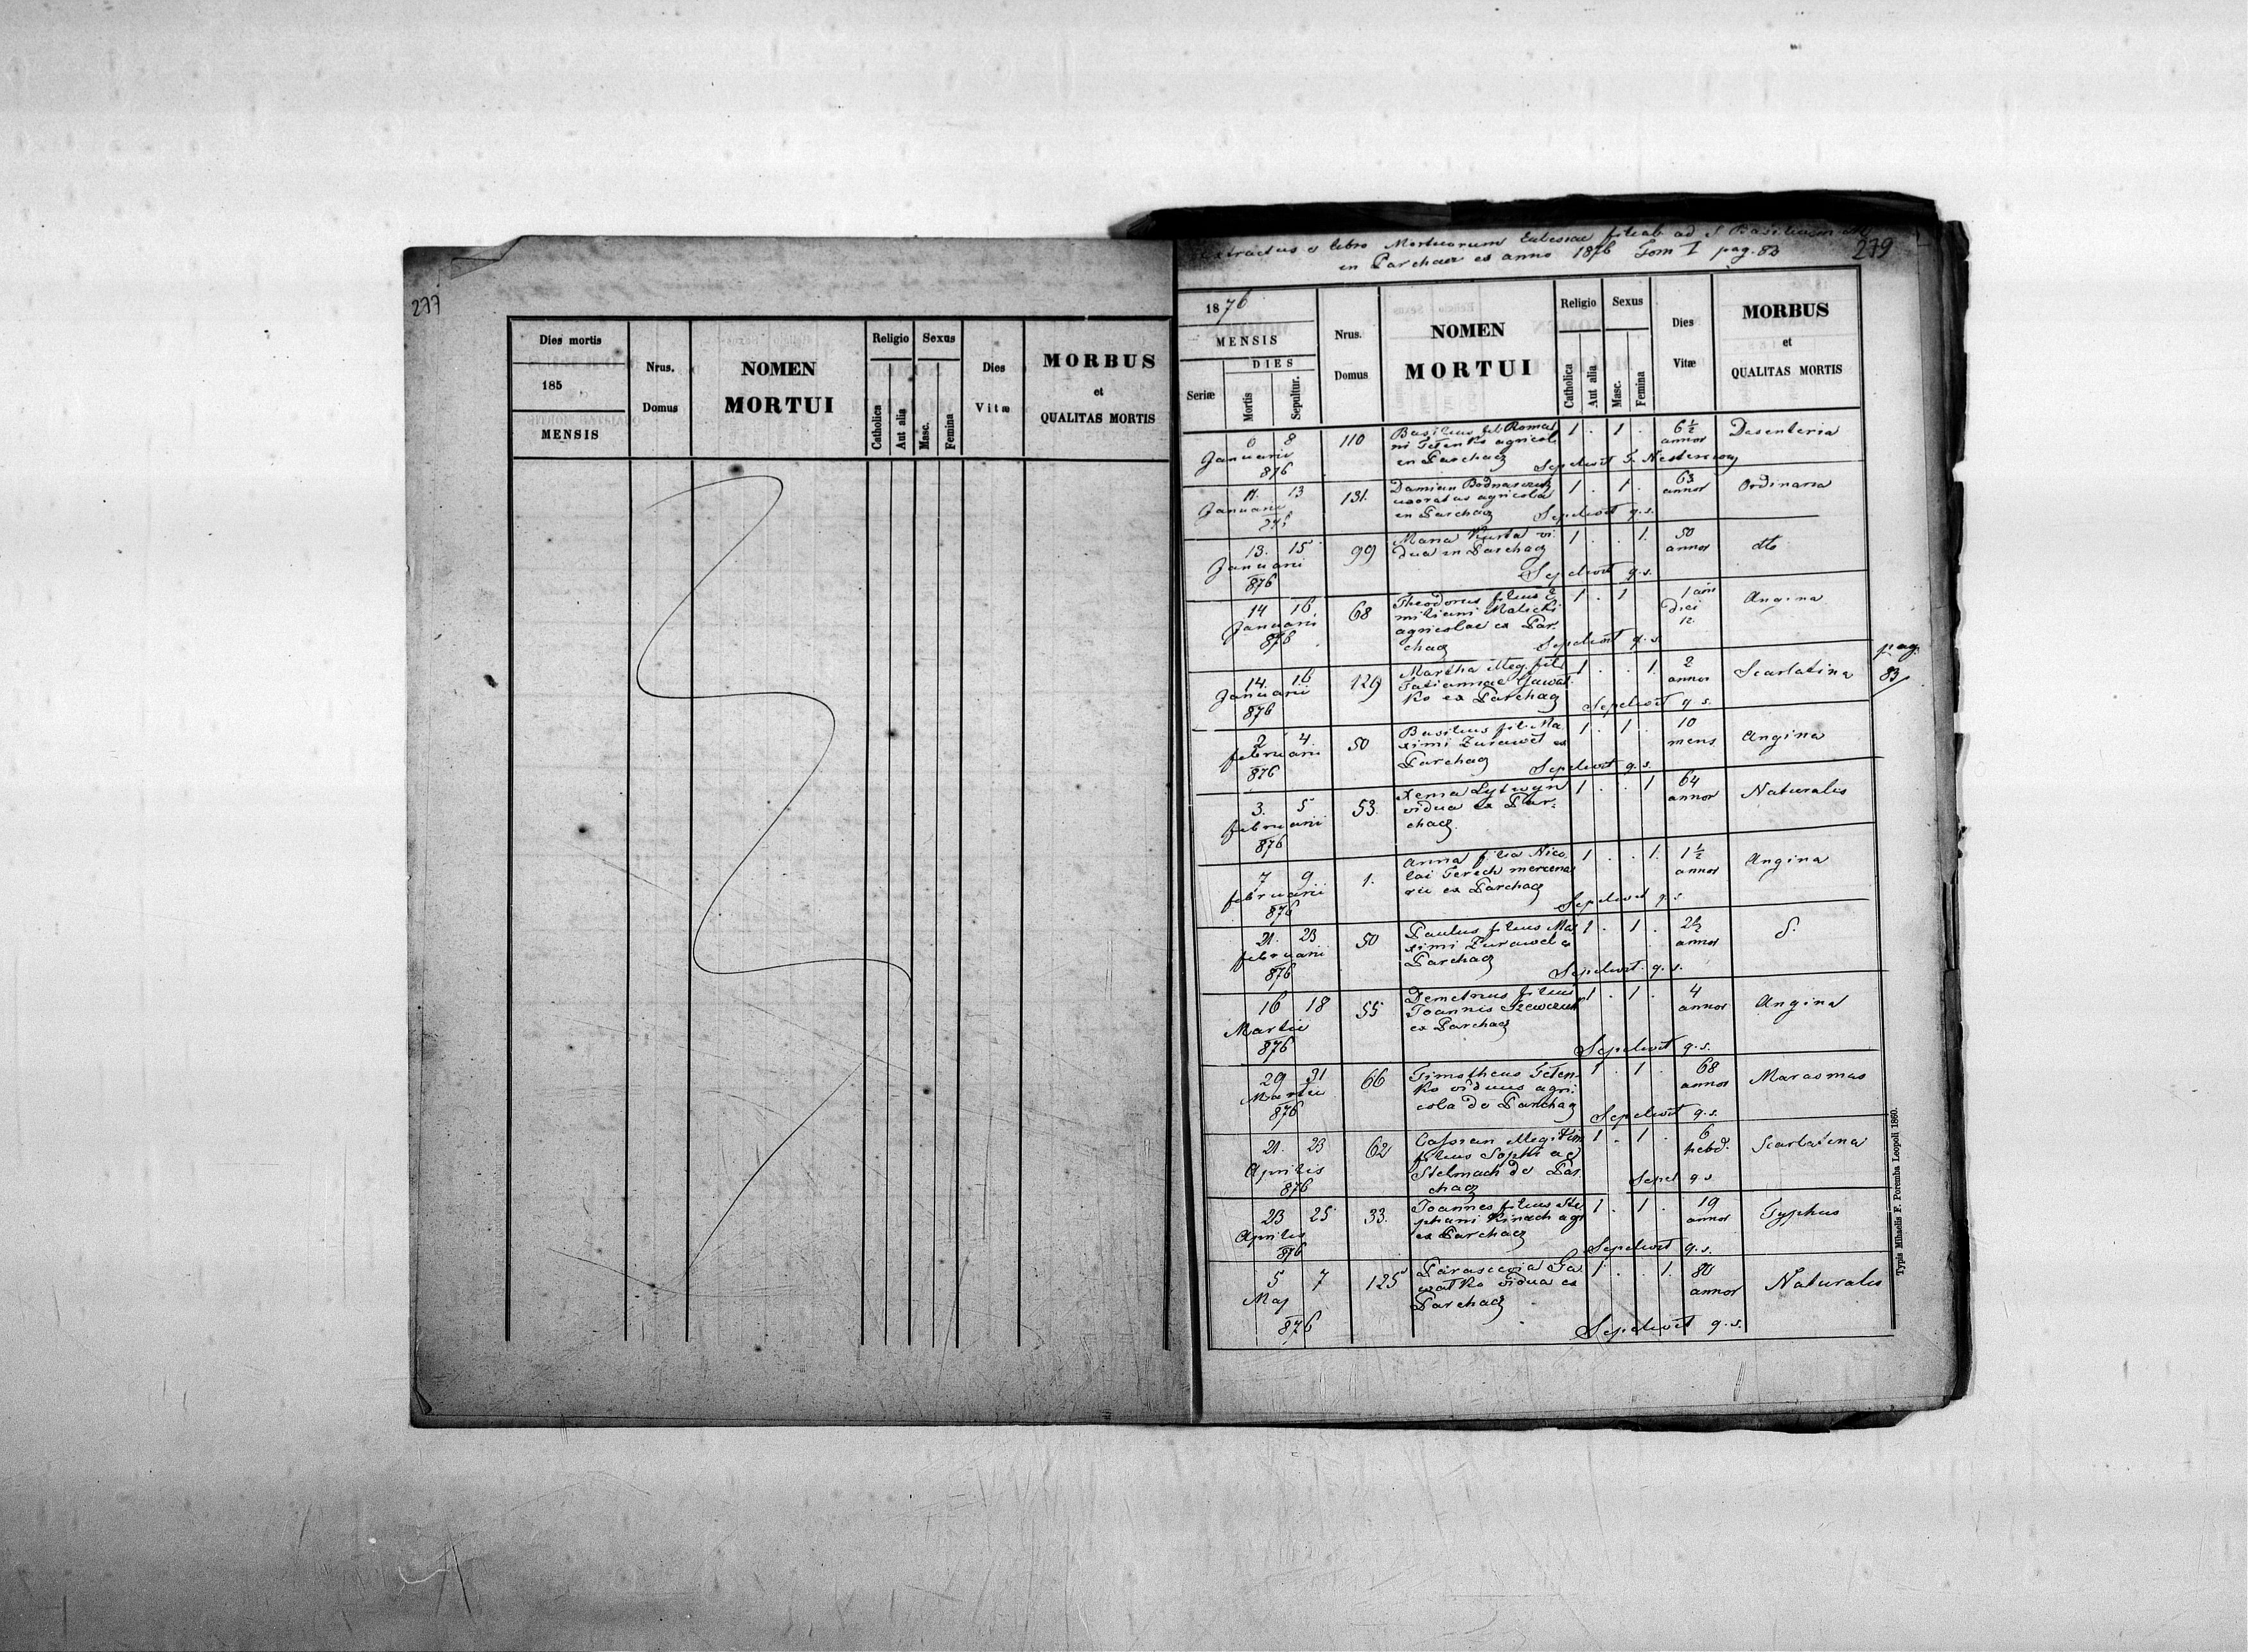 277
Dies mortis
185
MENSIS
Nrus.
Domus
NOMEN
MORTUI
Religio
Catholica
Aut alia
Sexus
Masc.
Femina
Dies
Vitæ
MORBUS
et
QUALITAS MORTIS
Extractus e libro Mortuorum Eclesiae filial. ad S Basilium
en Parchacz ex anno 1876 Tom I pag. 83
279
1876
MENSIS
DIES
Seriæ
Mortis
Sepultur.
Nrus.
Domus
NOMEN
MORTUI
Religio
Catholica
Aut alia
Sexus
Masc.
Femina
Dies
Vitæ
MORBUS
et
QUALITAS MORTIS
6 8 110 Basilius fil. Roma 1 . 1 . 6½ Desenteria
Januarii ni Teten ko agricol annor
876 en Parchacz Sepelivit J. Nesterowy
11. 13 131. Damian Bodnarczuk 1 . 1 . 63 Ordinaria
Januarii uxoratus agricola annor
876 en Parchacz Sepelivit q.s.
13. 15 99 Maria Kusta vi 1 . . 1. 50 dto
Januarii dua en Parchacz annor
876 Sepelivit q.s.
14 16 68 Theodorus filius 1 . 1 1 an Angina
Januarii miliani Malicki diei
876 agricolae ex Par 12.
chacz Sepelivit q.s.
14. 16 129 Martha illeg. fil. 1 . . 1. 2 Scarlatina
Januarii Tatiannae Gawat annor
876 ko ex Parchacz Sepelivit q.s.
pag.
83
2 4. 50 Basilius fil. Ma 1 . 1 . 10 Angina
februarii ximi Zurawel ex mens
876 Parchacz Sepelivit q.s.
3. 5 53. Xenia Lytwyn 1 . . 1 64 Naturalis
februarii vidua ex Par annor
876 chacz.
7 9 1. Anna filia Nico 1 . . 1. 1½ Angina
februarii lai Terech mercena annor
876 rii ex Parchacz Sepelivit q.s.
21. 23 50 Paulus filius Ma 1 . 1 . 2½ d.
februarii ximi Zurawel ex annor
876 Parchacz Sepelivit q.s.
16 18 55 Demetrius filius 1 . 1 . 4 Angina
Martii Joannis Szewczuk annor
876 ex Parchacz Sepelivit q.s.
29 31 66 Timotheus Teten 1 . 1 . 68 Marasmus
Martii ko viduus agri annor
876 cola de Parchacz Sepelivit q.s.
21. 23 62 Cassian illegitim 1 . 1 . 6 Scarlatina
Aprilis filius Sophiae hebd.
876 Stelmach de Par
chacz Sepel q.s
23 25 33. Joannes filius Ste 1 . 1 . 19 Typhus
Aprilis phani Kinach agr annor
876 ex Parchacz Sepelivit q.s.
5 7 125 Parascevia Ga 1 . . 1. 80 Naturalis
Maj watko vidua ex annor
876 Parchacz Sepelivit q.s.
Typis Mihaelis F. Poremba Leopoli 1860.